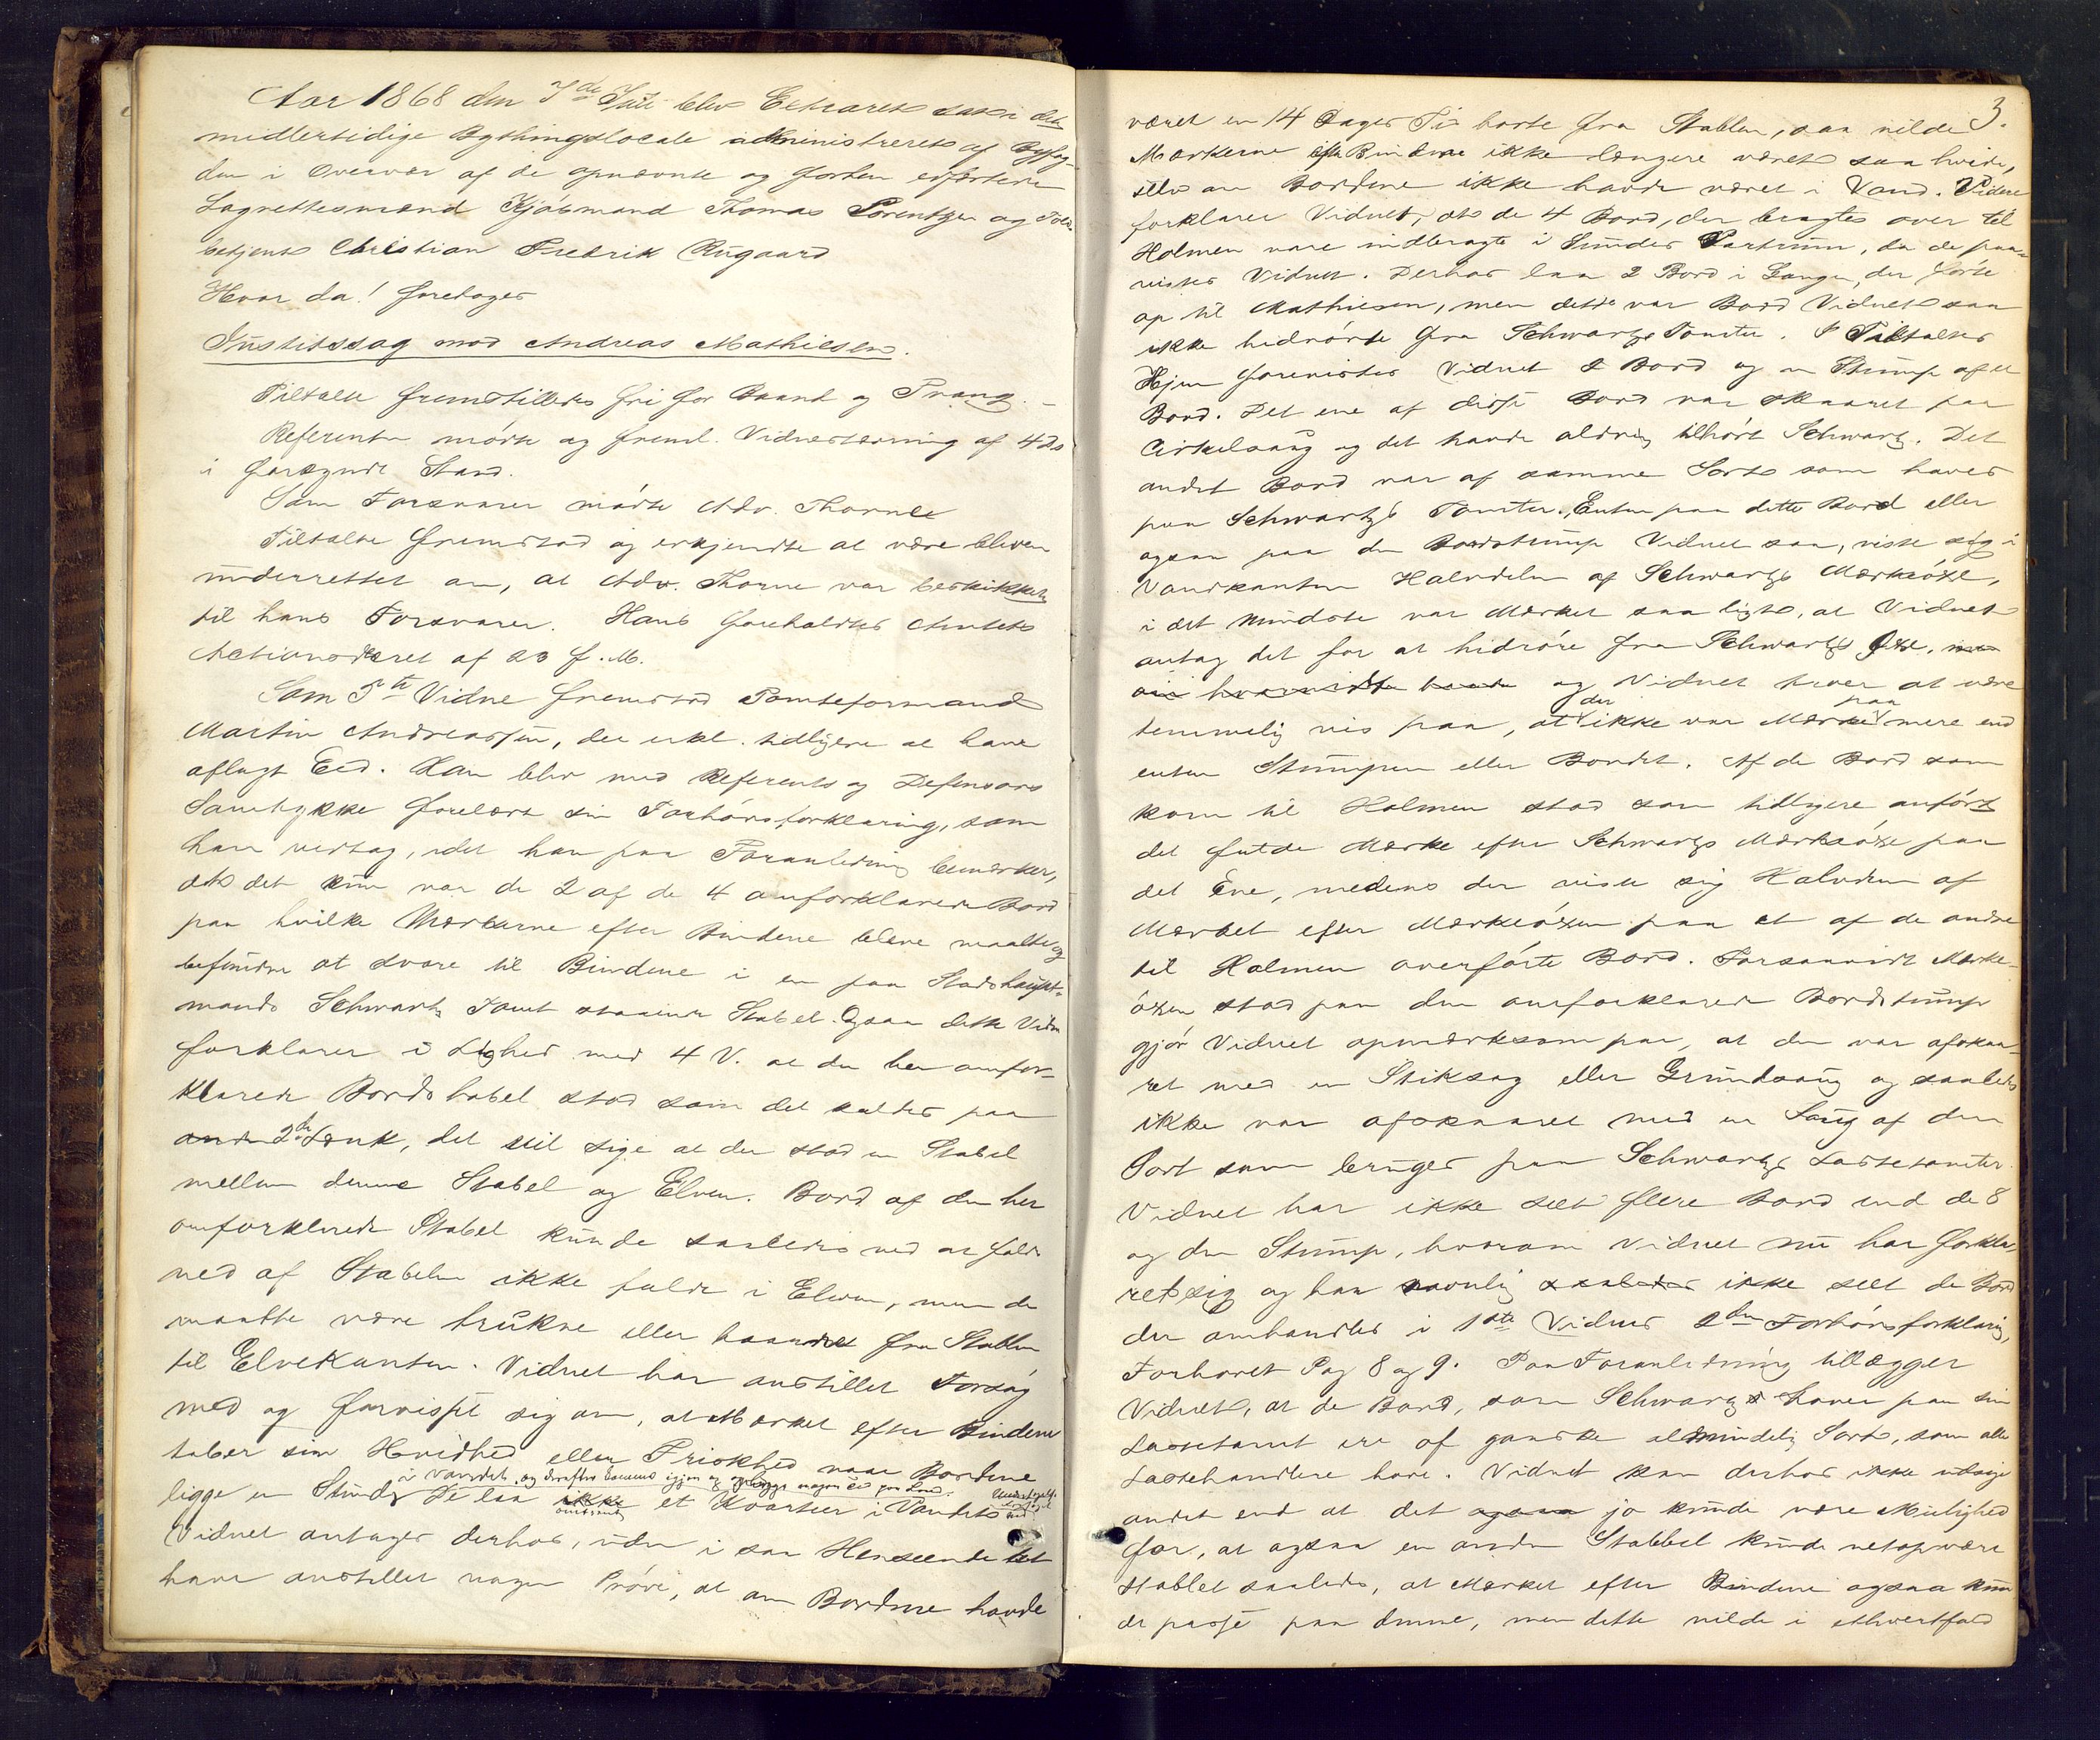 Aar 1868 den 7de Juli blev Extraret sat i det
midlertidige Bythingslocale administreret af Byfog-
den i Overvær af de opnævnte og forhen edfæstede
Lagrettesmænd Kjøbmand Thomas Lorentzen og Told-
betjent Christian Fredrik Rugaard
Hvor da! foretoges
Justitssag mod Andreas Mathiesen.
Tiltalte fremstilledes fri for Baand og Tvang. –
Referenten mødte og freml. Vidnestævning af 4 ds
i forkyndt Stand.
Som Forsvarer mødte Adv. Thorne
Tiltalte fremstod og erkjendte at være bleven
underrettet om, at Adv. Thorne var beskikket
til hans Forsvarer. Hans foreholdtes Amtets
Actionsordre af 23 f. M.
Som 5te Vidne fremstod Tomteformand
Martin Andreassen, der erkl. tidligere at have
aflagt Eed. Han blev med Referents og Defensors
Samtykke forelæst sin Forhørsforklaring, som
han vedtog, idet han paa Foranledning bemærker,
at det kun var de 2 af de 4 omforklarede Bord
paa hvilke Mærkerne efter Bindene bleve maalte og
befundne at svare til Bindene i en paa Stadshaupt-
mands Schwartz Tomt staaende Stabel. Ogsaa dette Vidne
forklarer i Lighed med 4 V. at den her omfor-
klarede Bordstabel stod som det kaldes paa
anden 2den Lænk, det vil sige at der stod en Stabel
mellem denne Stabel og Elven. Bord af den her
omforklarede Stabel kunde saaledes ved at falde
ned af Stabelen ikke falde i Elven, men de
maatte være trukne eller baarne fra Stablen
til Elvekanten. Vidnet har anstillet Forsøg
med og forvisset sig om, at Mærket efter Bindene
taber sin Hvidhed eller Friskhed naar Bordene
i Vandet, og derefter komme igjen og ligge nogen Tid paa Land.
ligge en Stund De laa ikke et Kvarteer i Vandet
Vidnet antager derhos, uden i saa Henseende at
have anstillet nogen Prøve, at om Bordene havde
3.
været en 14 Dages Tid borte fra Stablen, saa vilde
Mærkerne efter Bindene ikke længere været saa hvide,
selv om Bordene ikke havde været i Vand. Videre
forklarer Vidnet, at de 4 Bord, der bragtes over til
Holmen vare indbragte i Sundes Partrum, da de paa-
vistes Vidnet. Derhos laa 2 Bord i Gangen, der førte
op til Mathiesen, men dette var Bord Vidnet saa
ikke hidrørte fra Schwartz Tomter. I Tiltaltes
Hjem forevistes Vidnet 2 Bord og en Stump af et
Bord. Det ene af disse Bord var skaaret paa
Cirkelsaug og det havde aldrig tilhørt Schwartz. Det
andet Bord var af samme Sort som haves
paa Schwartz's Tomter. Enten paa dette Bord eller
ogsaa paa den Bordstump Vidnet saa, viste sig i
Vandkanten Halvdelen af Schwartz's Mærkeøxe,
i det mindste var Mærket saa ligt, at Vidnet
antog det for at hidrøre fra Schwartz's Øxe, men
og Vidnet troer at være
temmelig vis paa, at der ikke var Mærke paa mere end
enten Stumpen eller Bordet. Af de Bord som
kom til Holmen stod som tidligere anført
det fulde Mærke efter Schwartz Mærkeøxe paa
det Ene, medens der viste sig Halvdelen af
Mærket efter Mærkeøxen paa et af de andre
til Holmen overførte Bord. Forsaavidt Mærke-
øxen stod paa den omforklarede Bordstump
gjør Vidnet opmærksom paa, at den var afskaa-
ret med en Stiksag eller Grundsaug og saaledes
ikke var afskaaret med en Saug af den
Sort som bruges paa Schwartz's Lastetomter.
Vidnet har ikke seet flere Bord end de 8
og den Stump, hvorom Vidnet nu har forkla-
ret sig og han navnlig saaledes ikke seet de Bord
der omhandles i 1ste Vidnes 2den Forhørsforklaring,
Forhøret Pag 8 og 9. Paa Foranledning tillægger
Vidnet, at de Bord, som Schwartz haver paa sin
Lastetomt ere af ganske almindelig Sort, som alle
Lastehandlere have. Vidnet kan derhos ikke udsige
andet end at det ogsaa jo kunde være Mulighed
for, at ogsaa en anden Stabbel kunde netop være
stablet saaledes, at Mærket efter Bindene ogsaa kun-
de passe paa denne, men dette vilde i ethvertfald